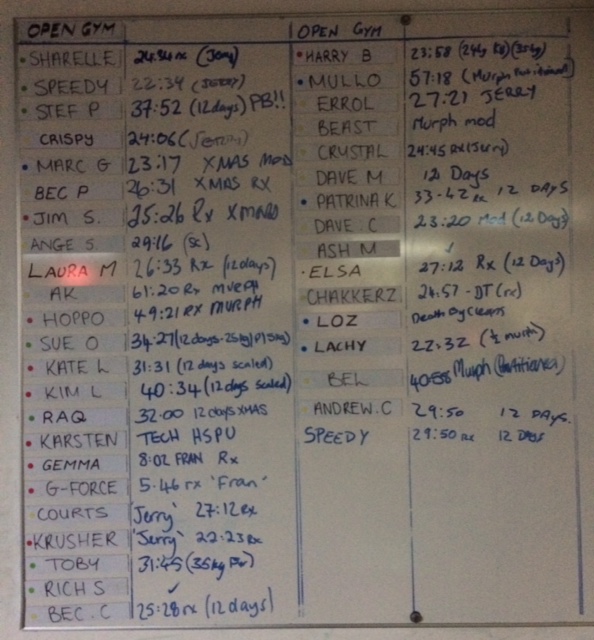 OPEN GYM
SHARELLE 24:34 rx (Jerry)
SPEEDY 22:34 (JERRY)
STEF P 37:52 (12 days) PB!!
CRISPY 24:06 (JERRY)
MARC G 23:17 XMAS MOD
BEC P 26:31 XMAS RX
JIM S. 25:26 Rx XMAS
ANGE S 29:16 (sc)
LAURA M 26:33 Rx (12days)
AK 61:20 Rx MURPH
HOPPO 49:21 RX MURPH
SUE O 34:27 (12days-25kg
KATE L 31:31 (12 days scaled)
KIM L 40:34 (12 days scaled)
RAQ 32:00 12 days XMAS
KARSTEN TECH HSPU
GEMMA 8:02 FRAN Rx
G-FORCE 5:46 rx 'Fran'
COURTS 'Jerry' 27:12 Rx
KRUSHER 'Jerry' 22:23 Rx
TOBY 31:45 (35kg
RICH S ✓
BEC.C 25:28 rx (12 days)
OPEN GYM
HARRY B 23:58 (24kg KB) (35kg)
MULLO 57:18 (Murph Partitioned)
ERROL 27:21 JERRY
BEAST Murph mod
CRYSTAL 24:45 RX (Jerry)
DAVE M 12 Days
PATRINA K 33-42 rx 12 DAYS
DAVE.C 23:20 Mod (12 Days)
ASH M ✓
ELSA 27:12 Rx (12 Days)
CHAKKERZ 24:57 - DT (rx)
LOZ Death By Cleans
LACHY 22:32 (½ murph)
BEL 40:58 Murph (Partitioned)
ANDREW.C 29:50 12 DAYS.
SPEEDY 29:50 rx 12 DAYS